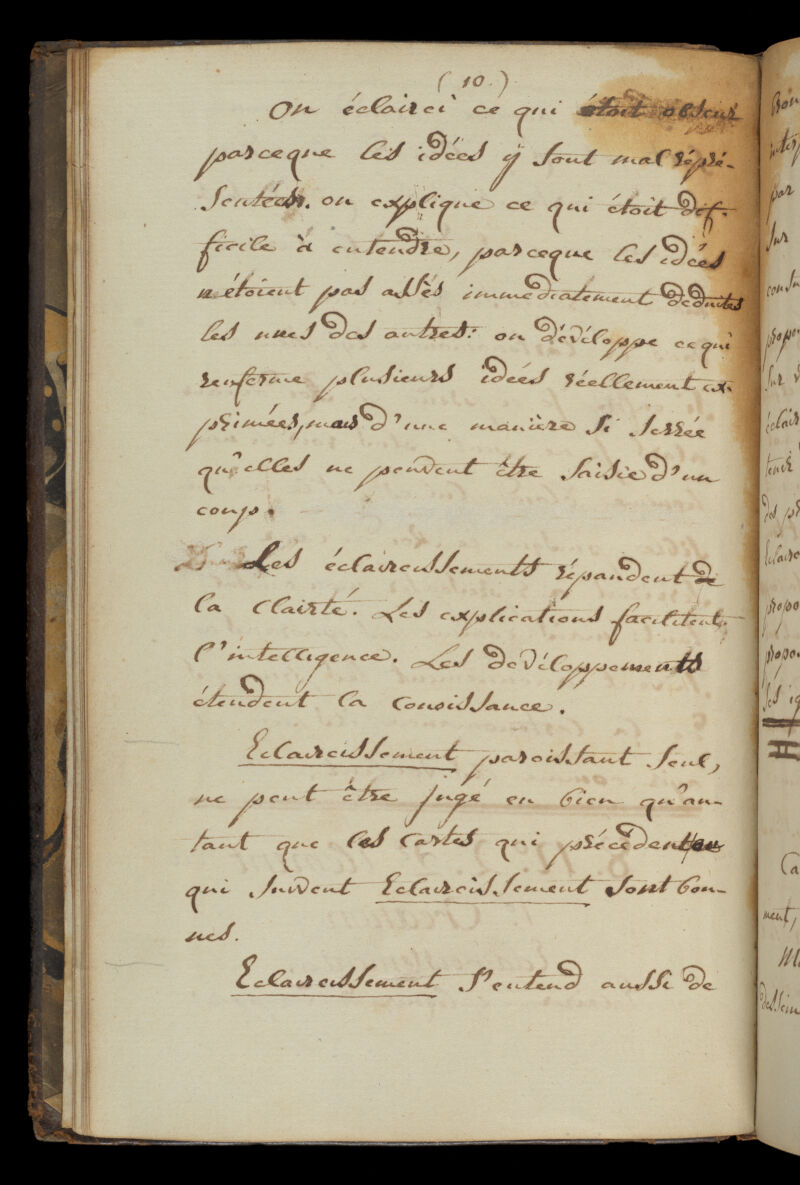 ( 10. )
On éclairci ce qui étoit obscur
parceque les idées y sont mal répré-
sentées. on explique ce qui étoit dif-
ficile à entendre, parceque les idées
n'étoient pas assès immédiatement déduites
les unes des autres: on dévéloppe ce qui
renferme plusieurs idées réellement ex-
primées, mais d'une manière si serrée
qu'elles ne peuvent être saisie d'un
coup.
Les éclaircissements répandent de
la clairté. Les explications facilitent
l'intelligence. Les dévéloppements
étendent la conoissance.
Eclaircissement paroissant seul,
ne peut être jugé en bien qu'au-
tant que les cartes qui précèdent, ou
qui suivent Eclaircissement sont bon-
nes.
Eclaircissement s'entend aussi de
par
sur
propo
propo
Ca
ment,
dessein